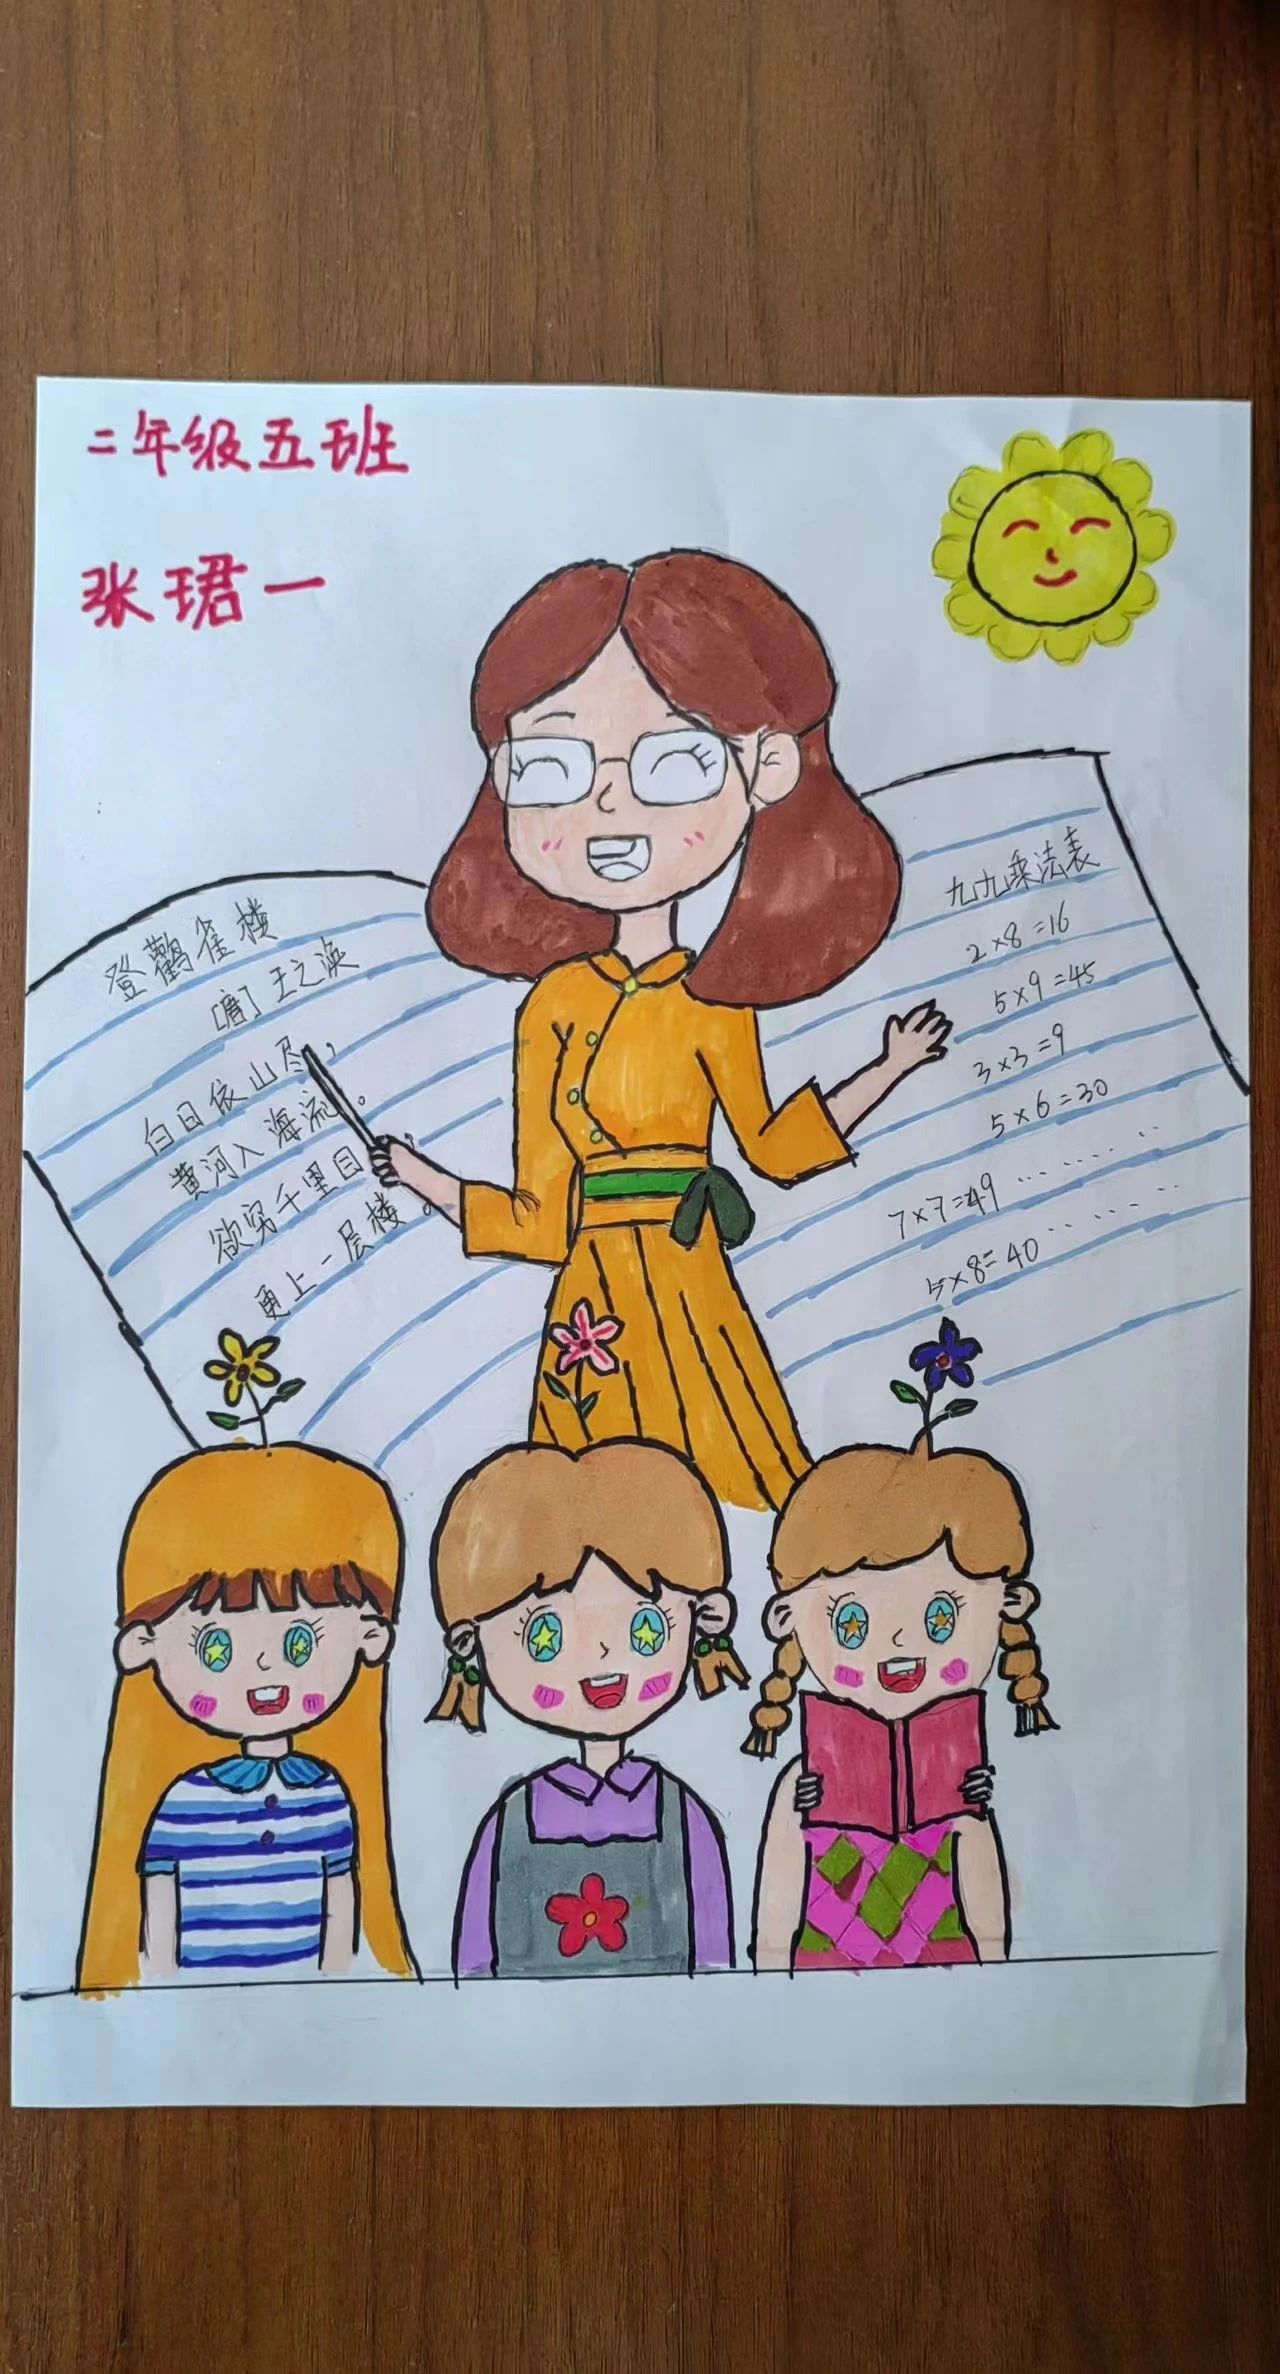 二年级五班
张珺一
登鹳雀楼
[唐]王之涣
白日依山尽，
黄河入海流。
欲穷千里目，
更上一层楼。
九九乘法表
2×8=16
5×9=45
3×3=9
5×6=30
7×7=49……
5×8=40……